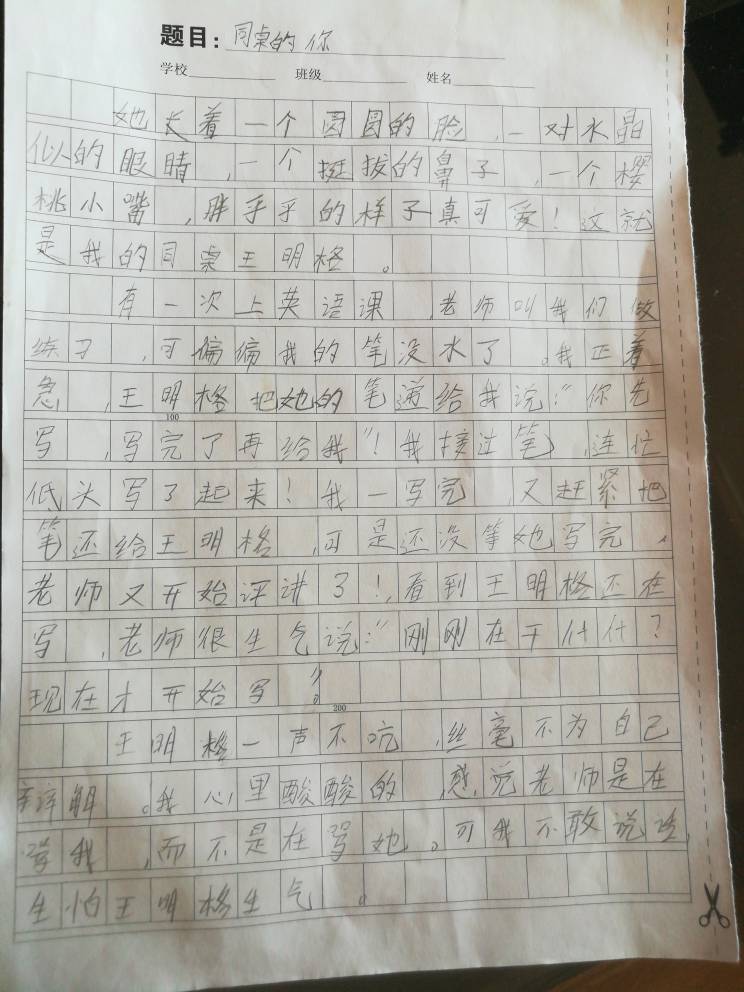 题目：同桌的你
学校 班级 姓名
她长着一个圆圆的脸，一对水晶
似的眼睛，一个挺拔的鼻子，一个樱
桃小嘴，胖乎乎的样子真可爱！这就
是我的同桌王明格。
有一次上英语课，老师叫我们做
练习，可偏偏我的笔没水了。我正着
急，王明格把她的笔递给我说：“你先
100
写，写完了再给我”！我接过笔，连忙
低头写了起来！我一写完，又赶紧把
笔还给王明格，可是还没等她写完，
老师又开始评讲了！，看到王明格还在
写，老师很生气说：“刚刚在干什什？
现在才开始写”。
200
王明格一声不吭，丝毫不为自己
辩解。我心里酸酸的，感觉老师是在
骂我，而不是在骂她。可我不敢说话，
生怕王明格生气。